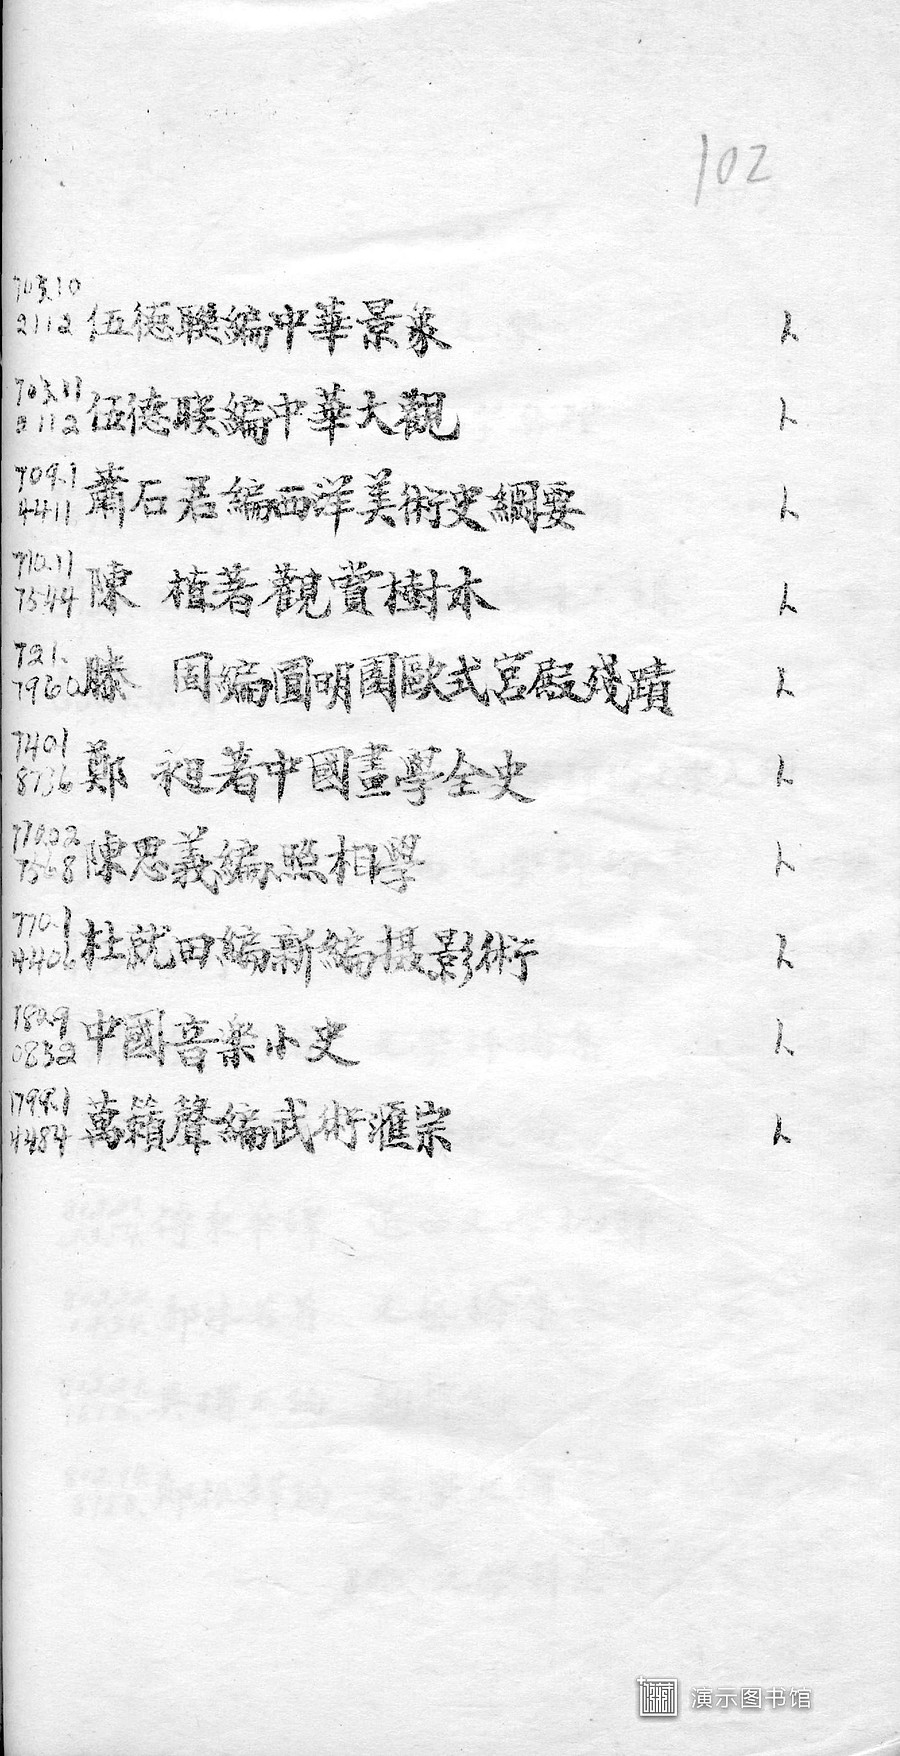 102
703.10
2112 伍德聯編中華景象 人
703.11
2112 伍德聯編中華大觀 人
709.1
4411 蕭石君編西洋美術史綱要 人
710.11
7544 陳 植著觀賞樹木 人
721.
7960 滕 固編圓明園歐式宮殿殘蹟 人
740.1
8736 鄭 昶著中國畫學全史 人
770.02
7568 陳思義編照相學 人
770.1
4406 杜就田編新編摄影術 人
782.9
0832 中國音樂小史 人
799.1
4484 萬籟聲編武術滙宗 人
演示图书馆